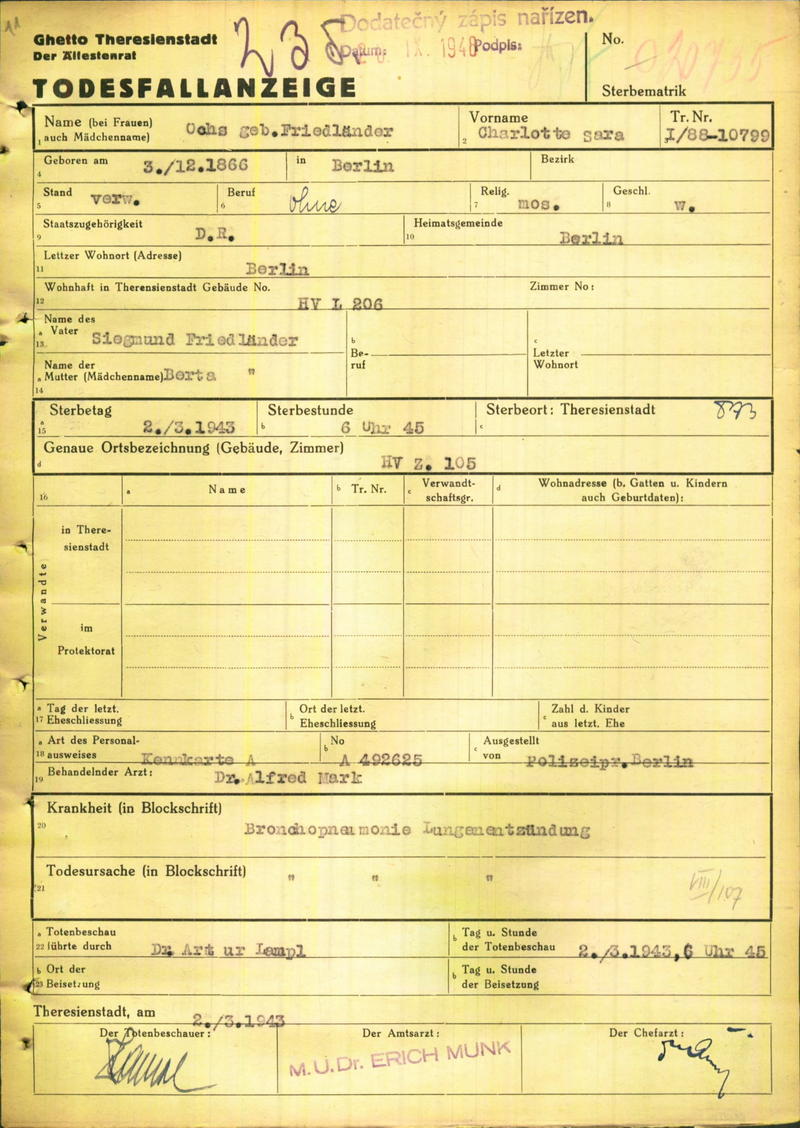 Ghetto Theresienstadt
Der Ältestenrat
TODESFALLANZEIGE
Dodatečný zápis nařízen.
Datum: IX. 1948 Podpis:
No.
Sterbematrik
Name (bei Frauen) auch Mädchenname) 1 Ochs geb.Friedländer
Vorname 2 Charlotte sara
Tr. Nr. I/88-10799
Geboren am 4 3./12.1866 in Berlin Bezirk
Stand 5 verw. Beruf 6 ohne Relig. 7 mos. Geschl. 8 w.
Staatszugehörigkeit 9 D.R. Heimatsgemeinde 10 Berlin
Letzter Wohnort (Adresse) 11 Berlin
Wohnhaft in Theresienstadt Gebäude No. 12 HV L 206 Zimmer No:
Name des a Vater 13 Siegmund Friedländer b Be-ruf c Letzter Wohnort
Name der a Mutter (Mädchenname) 14 Berta "
Sterbetag a 15 2./3.1943 Sterbestunde b 6 Uhr 45 Sterbeort: Theresienstadt c 873
Genaue Ortsbezeichnung (Gebäude, Zimmer) d HV Z. 105
16 a Name b Tr. Nr. c Verwandt-schaftsgr. d Wohnadresse (b. Gatten u. Kindern auch Geburtdaten):
Verwandte
in There-
sienstadt
im
Protektorat
a Tag der letzt. 17 Eheschliessung b Ort der letzt. Eheschliessung c Zahl d. Kinder aus letzt. Ehe
a Art des Personal- 18 ausweises Kennkarte A b No A 492625 c Ausgestellt von Polizeipr.Berlin
19 Behandelnder Arzt: Dr.Alfred Mark
Krankheit (in Blockschrift)
20 Bronchopneumonie Lungenentzündung
Todesursache (in Blockschrift) " " "
21 VIII/107
a Totenbeschau 22 führte durch Dr. Art ur Lampl b Tag u. Stunde der Totenbeschau 2./3.1943,6 Uhr 45
b Ort der 23 Beisetzung b Tag u. Stunde der Beisetzung
Theresienstadt, am 2./3.1943
Der Totenbeschauer: Der Amtsarzt: Der Chefarzt:
M.U.Dr. ERICH MUNK